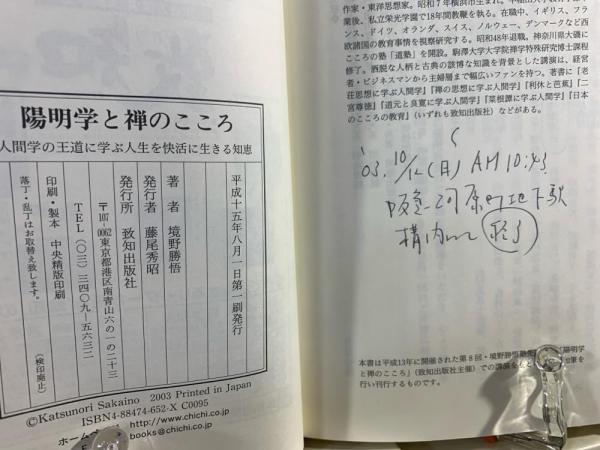 作家・東洋思想家。昭和7年横浜市生まれ。
業後、私立栄光学園で18年間教鞭を執る。在職中、イギリス、フラ
ンス、ドイツ、オランダ、スイス、ノルウェー、デンマークなど西
欧諸国の教育事情を視察研究する。昭和48年退職。神奈川県大磯に
こころの塾「道塾」を開設。駒澤大学大学院禅学特殊研究博士課程
修了。洒脱な人柄と古典の該博な知識を背景とした講演は、経営
者・ビジネスマンから主婦層まで幅広いファンを持つ。著書に『老
荘思想に学ぶ人間学』『禅の思想に学ぶ人間学』『利休と芭蕉』『二
宮尊徳』『道元と良寛に学ぶ人間学』『菜根譚に学ぶ人間学』『日本
のこころの教育』(いずれも致知出版社)などがある。
'03. 10/12(日) AM 10:43
阪急河原町地下駅
構内にて 終了
本書は平成13年に開催された第8回・境野勝悟塾
『陽明学
と禅のこころ』(致知出版社主催)での講演をもと
加筆を
行い刊行するものです。
陽明学と禅のこころ
人間学の王道に学ぶ人生を快活に生きる知恵
平成十五年八月一日第一刷発行
著者 境野勝悟
発行者 藤尾秀昭
発行所 致知出版社
〒107-0062 東京都港区南青山六の一の二十三
TEL(〇三)三四〇九―五六三二
印刷・製本 中央精版印刷
落丁・乱丁はお取替え致します。
(検印廃止)
©Katsunori Sakaino 2003 Printed in Japan
ISBN4-88474-652-X C0095
ホーム
http://www.chichi.co.jp
books@chichi.co.jp